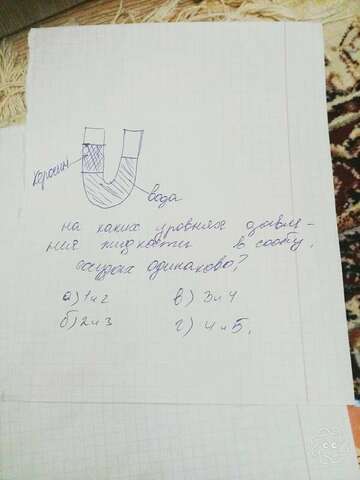 керосин
вода
на каких уровнях давле-
ния жидкости в сообщ.
сосудах одинаково?
а) 1 и 2 в) 3 и 4
б) 2 и 3 г) 4 и 5.